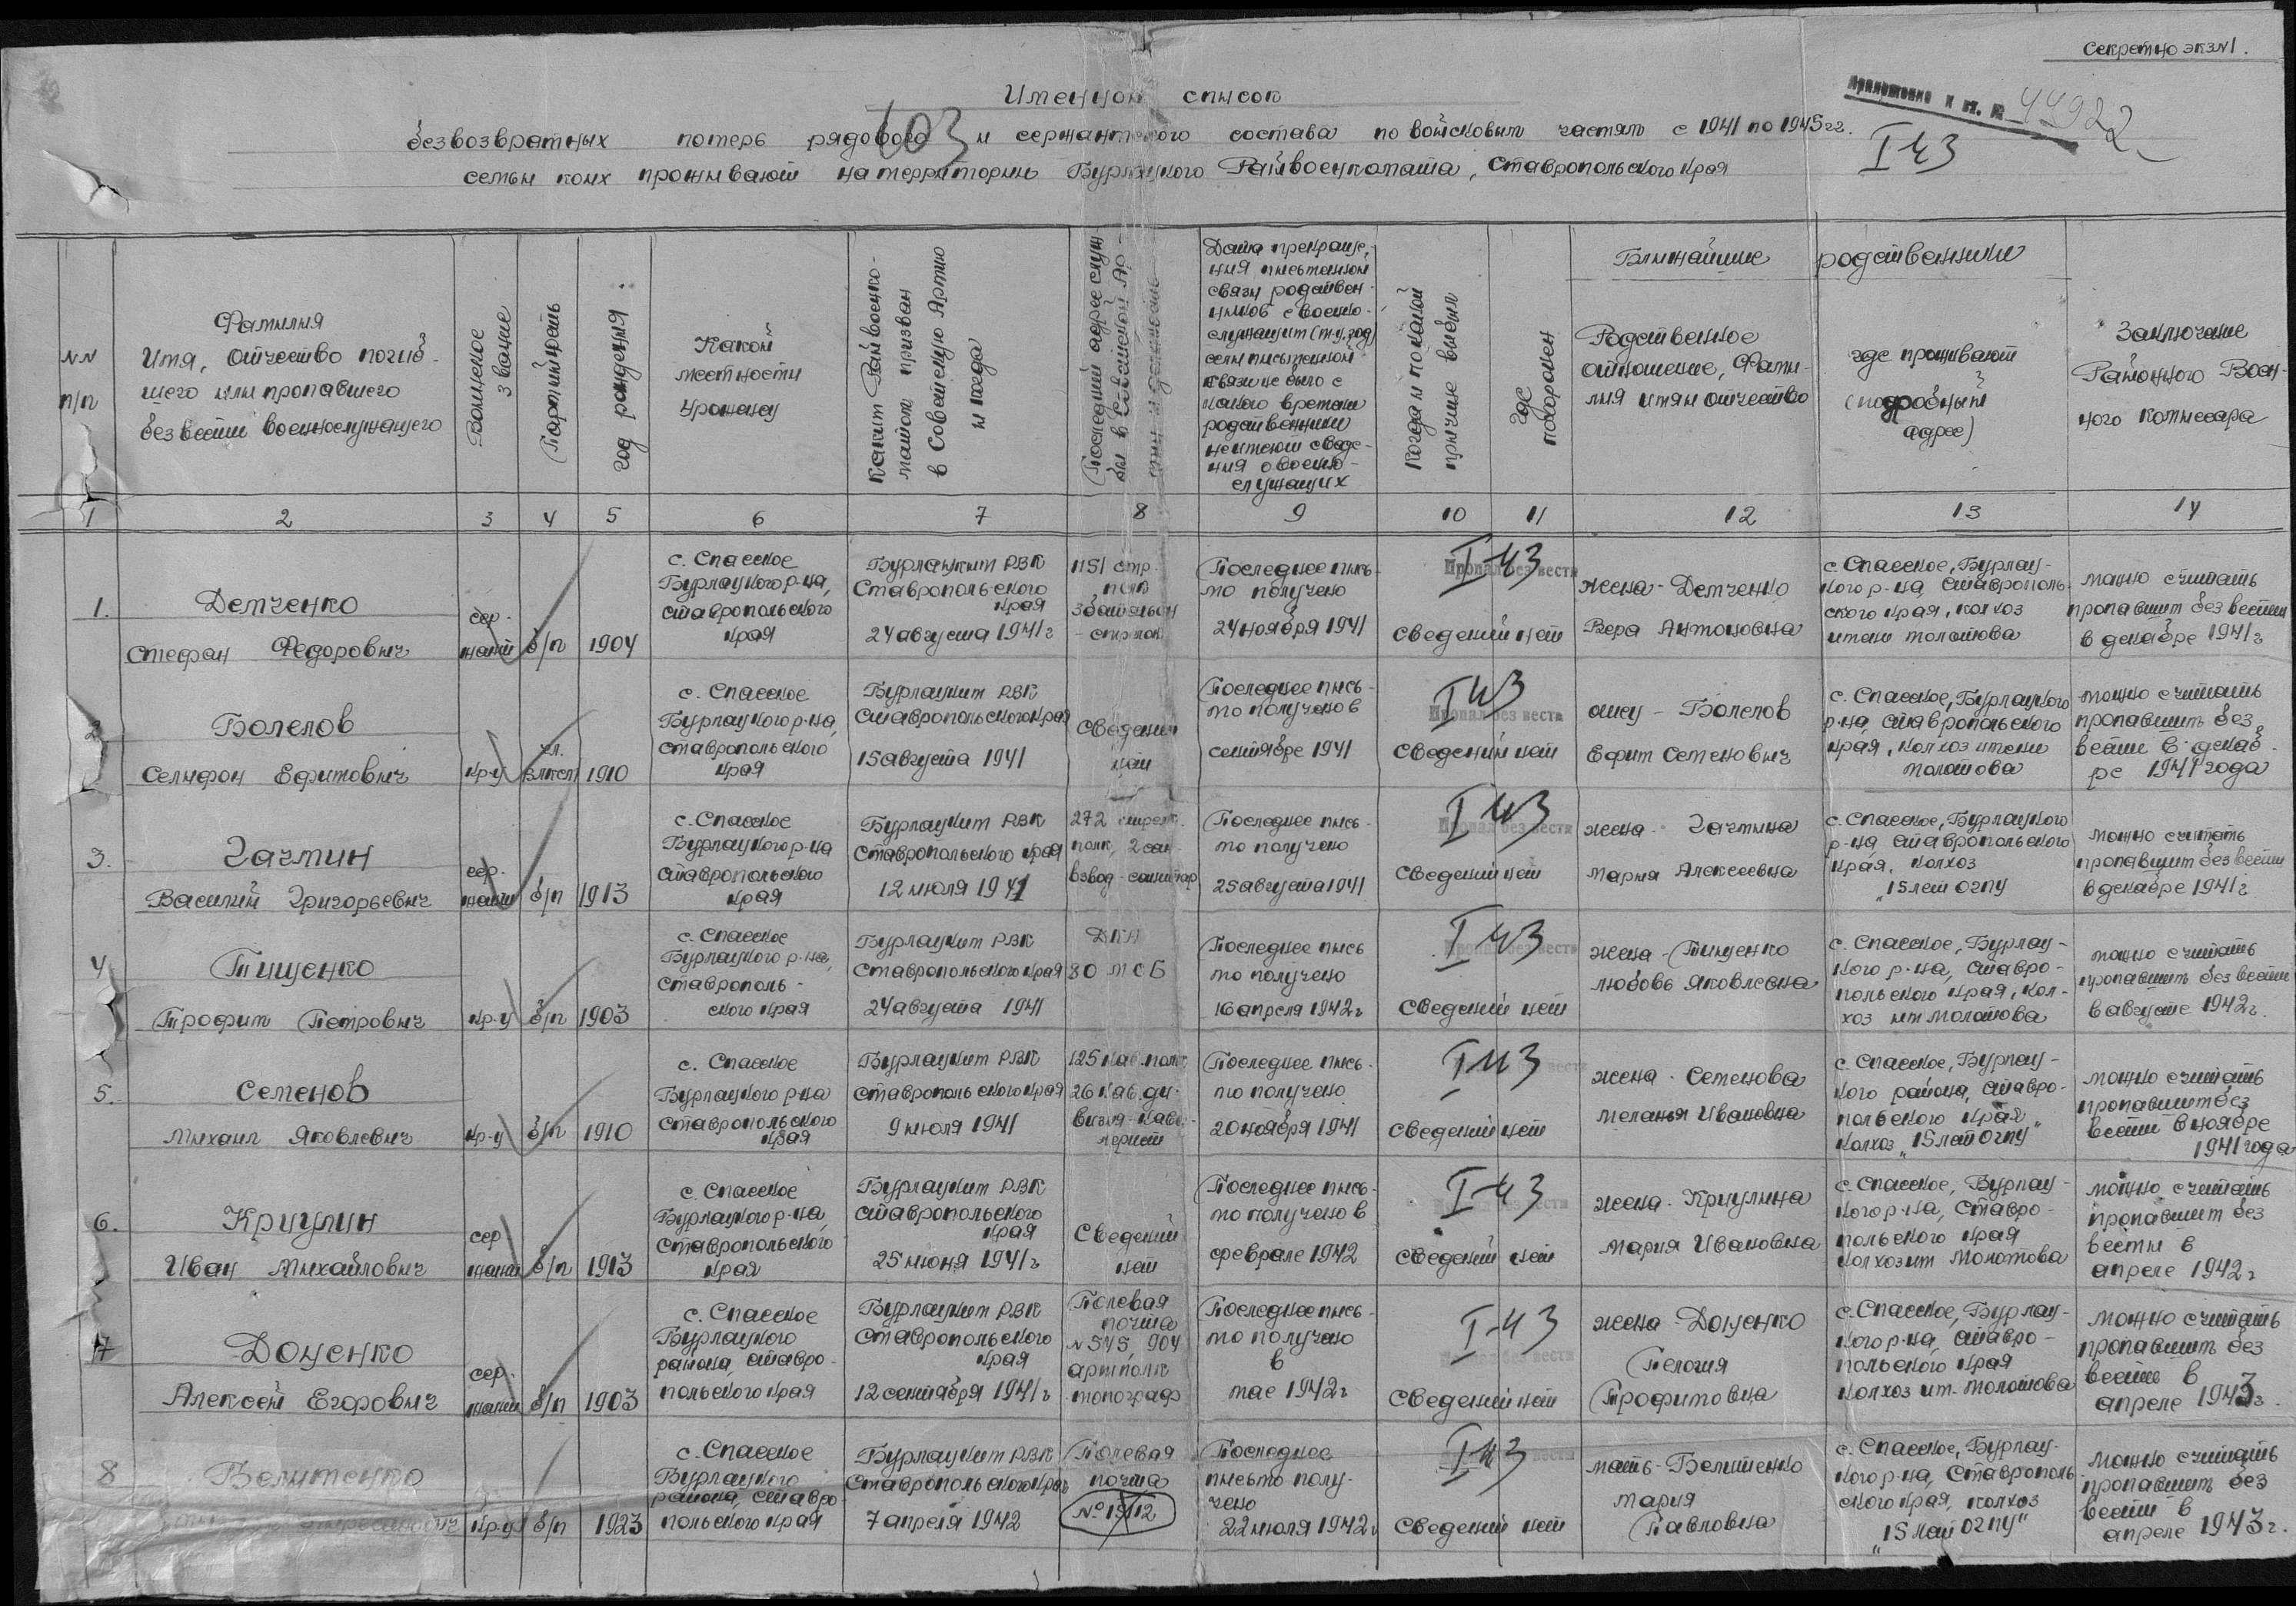 Секретно экз N1.
Приложение к вх. № 44922
I 43
Именной список
603
безвозвратных потерь рядового и сержантского состава по войсковым частям с 1941 по 1945 гг.
семьи коих проживают на территории Бурлацкого Райвоенкомата, Ставропольского Края
NN
п/п
Фамилия
Имя, отчество погиб-
шего или пропавшего
без вести военнослужащего
Воинское
звание
Партийность
год рождения
Какой
местности
уроженец
Каким Райвоенко-
матом призван
в Советскую Армию
и когда
Последний адрес служ-
бы в Советской Ар-
мии и должность
Дата прекраще-
ния письменной
связи родствен-
ников с военно-
служащим (м-ц, год)
если письменной
связи не было с
какого времени
родственники
не имеют сведе-
ния о военно-
служащих
Когда и по какой
причине выбыл
где
похоронен
Ближайшие родственники
Родственное
отношение, Фами-
лия имя и отчество
где проживают
(подробный
адрес)
Заключение
Районного Воен-
ного комиссара
1 2 3 4 5 6 7 8 9 10 11 12 13 14
1.
Демченко
Стефан Федорович
сер-
жант
б/п
1904
с. Спасское
Бурлацкого р-на,
Ставропольского
края
Бурлацким РВК
Ставропольского
края
24 августа 1941 г
1151 стр.
полк
3 батальон
- стрелок
Последнее пись-
мо получено
24 ноября 1941
I-43
Пропал без вести
сведений нет
жена - Демченко
Вера Антоновна
с. Спасское, Бурлац-
кого р-на, Ставрополь-
ского края, колхоз
имени Молотова
можно считать
пропавшим без вести
в декабре 1941 г
2
Болелов
Селифон Ефимович
кр-ц
чл.
ВЛКСМ
1910
с. Спасское
Бурлацкого р-на,
Ставропольского
края
Бурлацким РВК
Ставропольского Края
15 августа 1941
Сведений
нет
Последнее пись-
мо получено в
сентябре 1941
I 43
Пропал без вести
сведений нет
отец - Болелов
Ефим Семенович
с. Спасское, Бурлацкого
р-на, Ставропольского
края, колхоз имени
Молотова
можно считать
пропавшим без
вести в декаб-
ре 1941 года
3.
Гачмин
Василий Григорьевич
сер-
жант
б/п
1913
с. Спасское
Бурлацкого р-на
Ставропольского
края
Бурлацким РВК
Ставропольского края
12 июля 1941
272 стрелк.
полк, 2 сан-
взвод - санитар
Последнее пись-
мо получено
25 августа 1941
I 43
Пропал без вести
Сведений нет
жена - Гачмина
Мария Алексеевна
с. Спасское, Бурлацкого
р-на Ставропольского
края, колхоз
"15 лет ОГПУ
можно считать
пропавшим без вести
в декабре 1941 г
4
Тищенко
Трофим Петрович
кр-ц
б/п
1903
с. Спасское
Бурлацкого р-на,
Ставрополь-
ского края
Бурлацким РВК
Ставропольского Края
24 августа 1941
ДКА
80 МСБ
Последнее пись
мо получено
16 апреля 1942 г
I 43
Пропал без вести
Сведений нет
жена - Тищенко
Любовь Яковлевна
с. Спасское, Бурлац-
кого р-на, Ставро-
польского края, кол-
хоз им Молотова
можно считать
пропавшим без вести
в августе 1942 г.
5.
Семенов
Михаил Яковлевич
кр-ц
б/п
1910
с. Спасское
Бурлацкого р-на
Ставропольского
края
Бурлацким РВК
Ставропольского края
9 июля 1941
125 Кав. полк
26 Кав. ди-
визия - кава-
лерист
Последнее пись-
мо получено
20 ноября 1941
I 43
сведений нет
жена - Семенова
Меланья Ивановна
с. Спасское, Бурлац-
кого района, Ставро-
польского края,
колхоз "15 лет ОГПУ"
можно считать
пропавшим без
вести в ноябре
1941 года
6.
Крицулин
Иван Михайлович
сер
жант
б/п
1913
с. Спасское
Бурлацкого р-на,
Ставропольского
края
Бурлацким РВК
Ставропольского
края
25 июня 1941 г
Сведений
нет
Последнее пись-
мо получено в
феврале 1942
I-43
сведений нет
жена - Крицулина
Мария Ивановна
с. Спасское, Бурлац-
кого р-на, Ставро-
польского края
колхоз им Молотова
можно считать
пропавшим без
вести в
апреле 1942 г
7
Доценко
Алексей Егорович
сер-
жант
б/п
1903
с. Спасское
Бурлацкого
района, Ставро-
польского края
Бурлацким РВК
Ставропольского
края
12 сентября 1941 г
Полевая
почта
N 545, 904
артполк
топограф
Последнее пись-
мо получено
в
мае 1942 г
I-43
сведений нет
жена Доценко
Пелогия
Трофимовна
с. Спасское, Бурлац-
кого р-на, Ставро-
польского края
колхоз им. Молотова
можно считать
пропавшим без
вести в
апреле 1943 г.
8
Велитченко
кр-ц
б/п
1923
с. Спасское
Бурлацкого
района, Ставро
польского края
Бурлацким РВК
Ставропольского Края
7 апреля 1942
Полевая
почта
Последнее
письмо полу-
чено
22 июля 1942 г
I 43
Сведений нет
мать - Велитченко
Мария
Павловна
с. Спасское, Бурлац-
кого р-на, Ставрополь
ского края, колхоз
"15 лет ОГПУ"
можно считать
пропавшим без
вести в
апреле 1943 г.